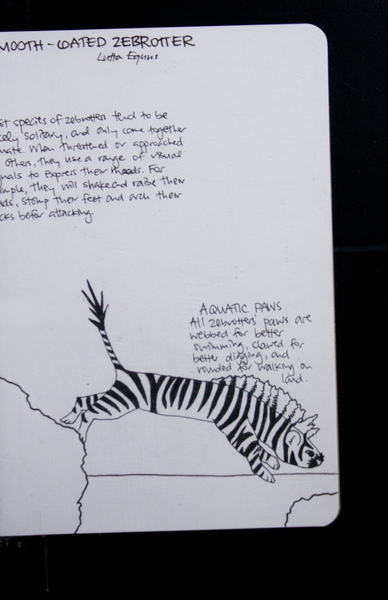 MOOTH-COATED ZEBROTTER
Lutta Equus
st species of zebrotters tend to be
solitary, and only come together
mate. When threatened or approached
other, they use a range of visual
nals to express their moods. For
mple, they will shake and raise their
ads, stomp their feet and arch their
cks befor attacking.
AQUATIC PAWS
All zebrotters' paws are
webbed for better
swimming, clawed for
better digging, and
rounded for walking on
land.